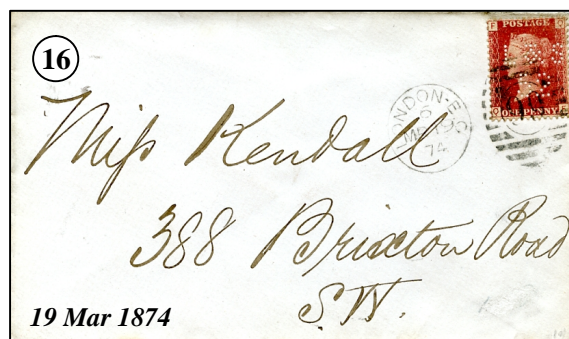 16
POSTAGE
ONE PENNY
LONDON·E.C
6
MR 19
74
Miſs Kendall
388 Brixton Road
S.W.
19 Mar 1874